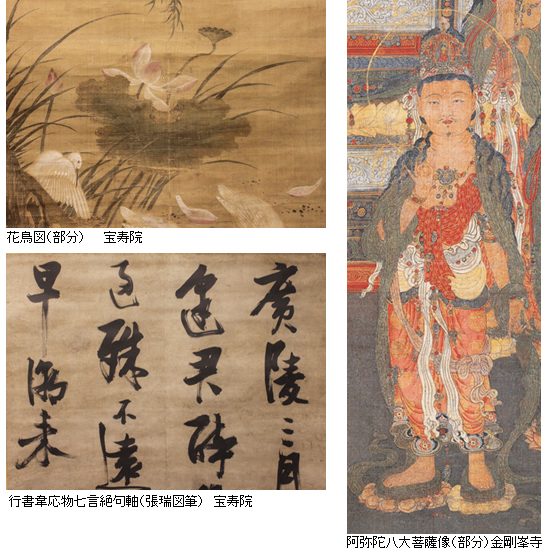 花鳥図(部分)　宝寿院
廣陵三月
逢君醉
過殊不遠
早潮来
行書韋応物七言絶句軸(張瑞図筆)　宝寿院
阿弥陀八大菩薩像(部分)金剛峯寺